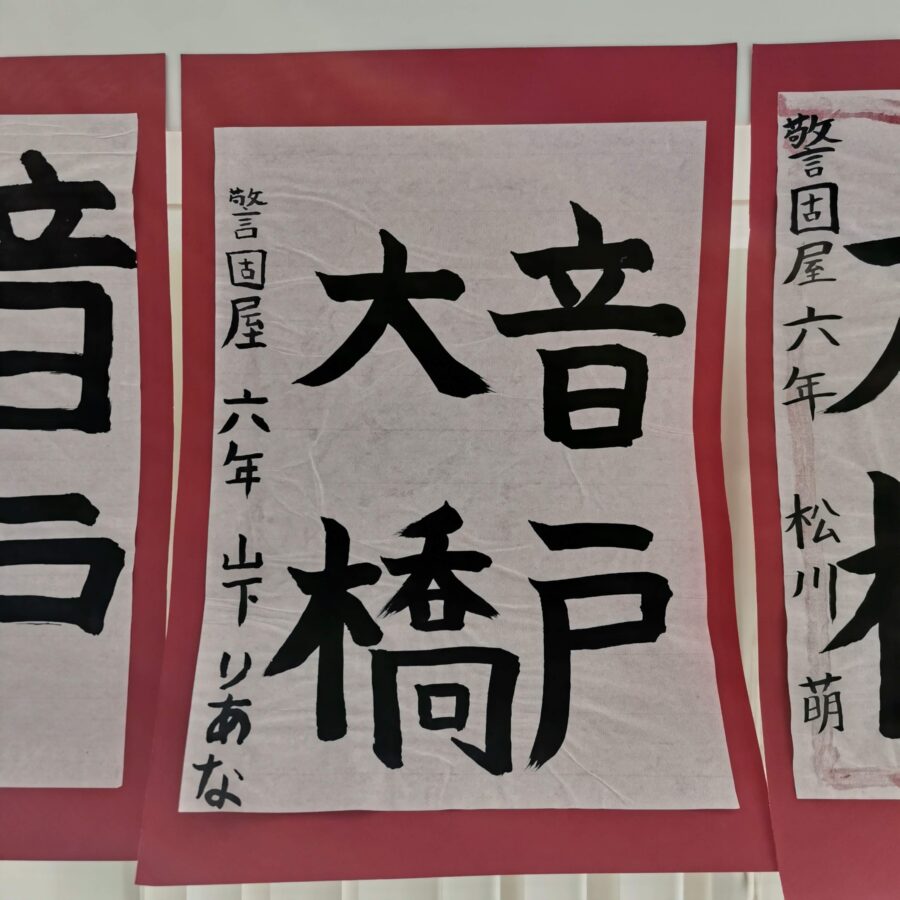 警固屋六年 松川 萌
音戸
大橋
警固屋 六年 山下 りあな
音戸